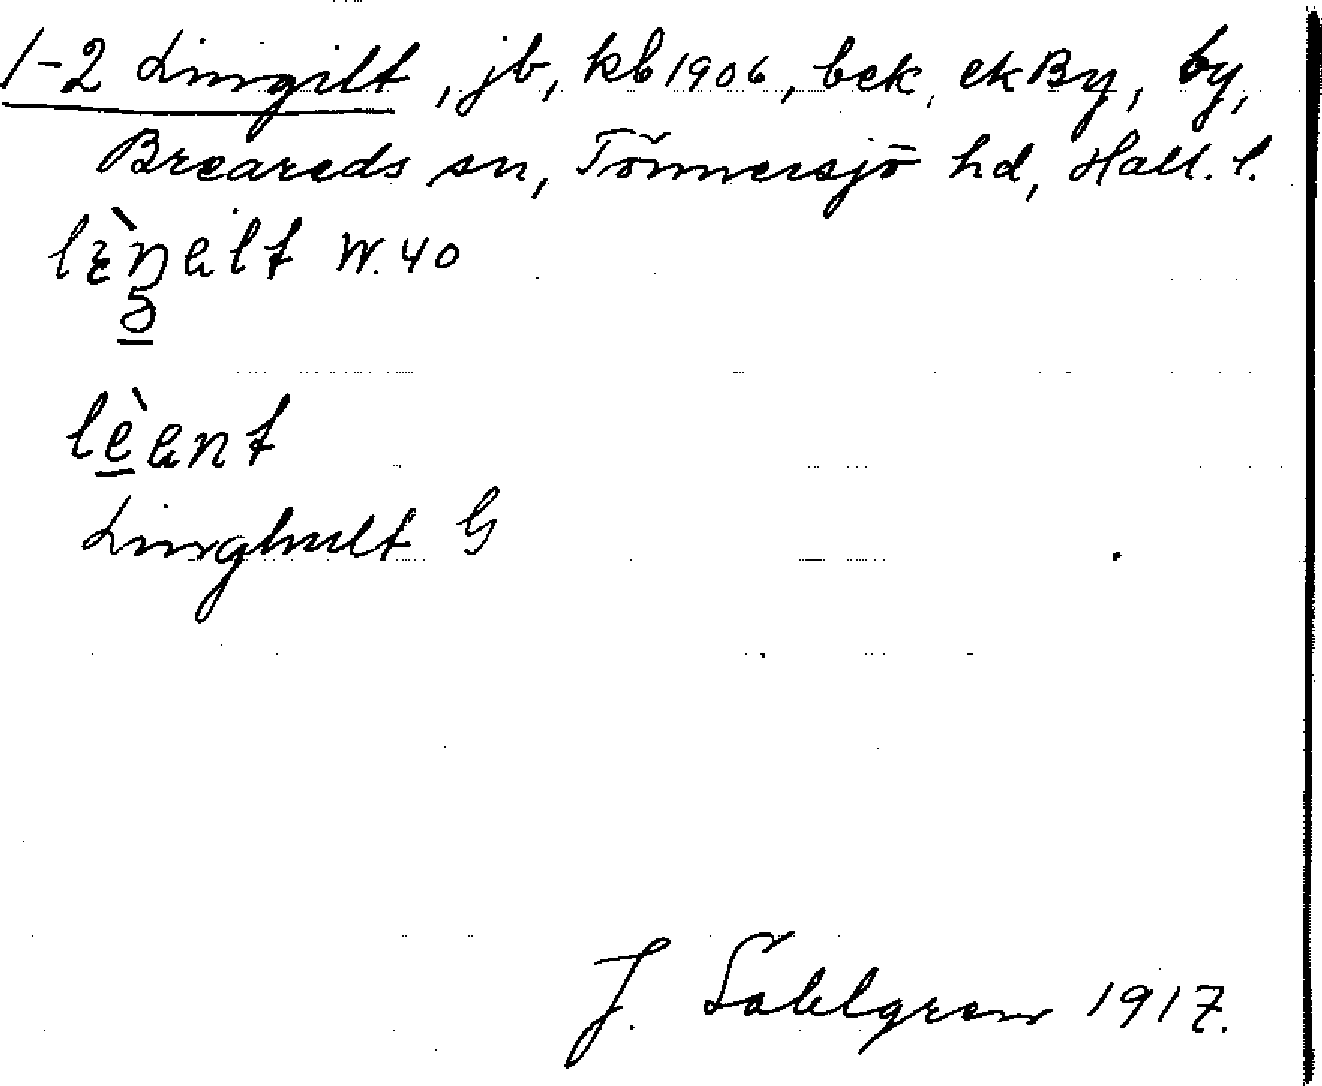 1-2 Lingilt, jb, kb 1906, bek, ek By, by,
Breareds sn, Tönnersjö hd, Hall. l.
W. 40
Linghult G
J. Sahlgren 1917.